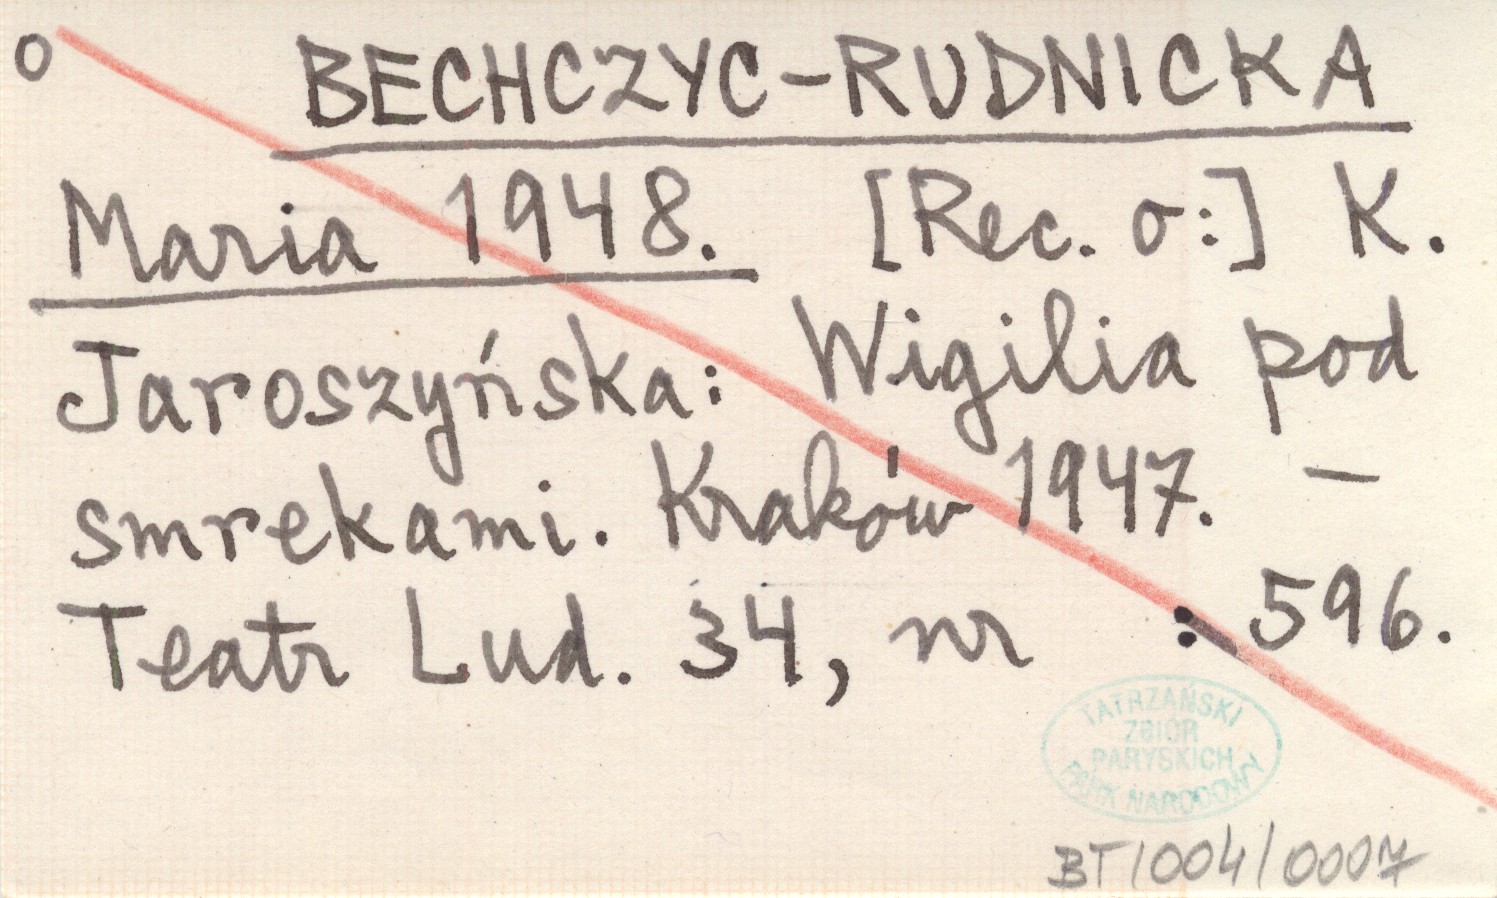 o BECHCZYC-RUDNICKA
Maria 1948. [Rec. o:] K.
Jaroszyńska: Wigilia pod
smrekami. Kraków 1947. —
Teatr Lud. 34, nr : 596.
TATRZAŃSKI
ZBIÓR
PARYSKICH
PARK NARODOWY
BT/004/0007